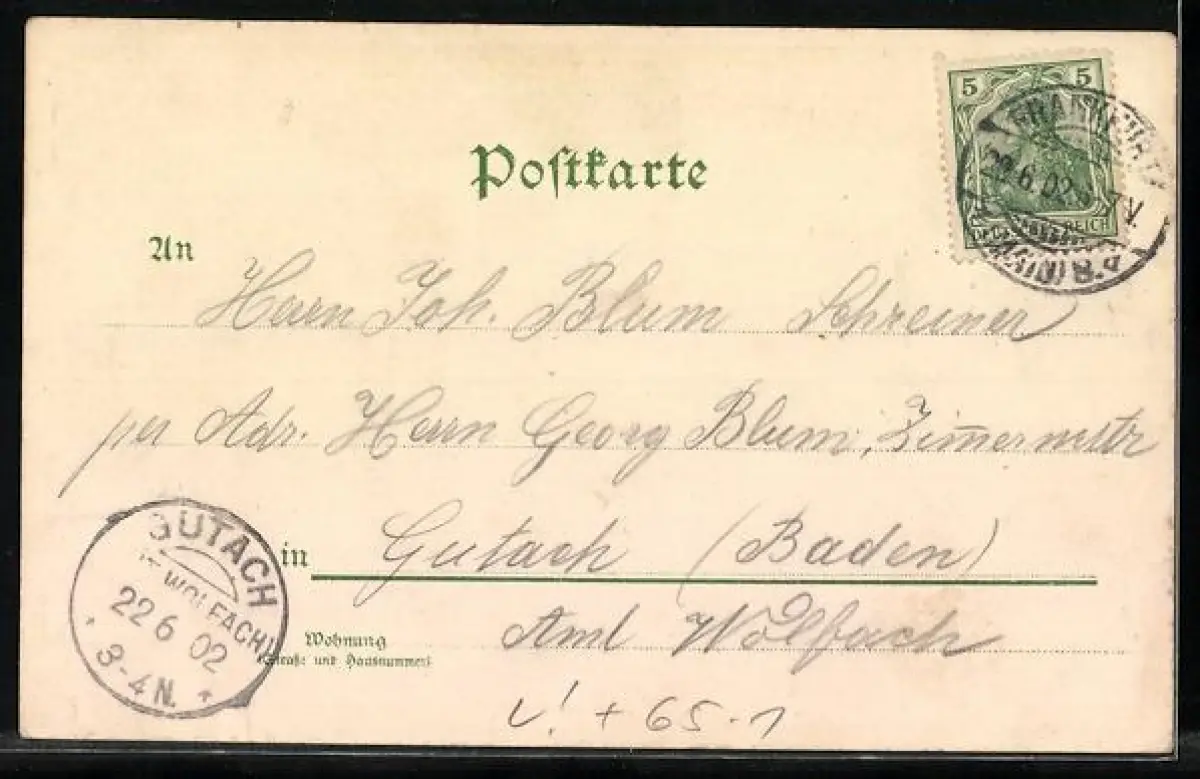 5 5
FRANKFURT
22.6.02. V.
REICH
Poſtkarte
An
Herrn Joh. Blum Schreiner
per Adr. Herrn Georg Blum, Zim̄ermstr
in Gutach (Baden)
Wohnung
(Straße und Hausnummer)
Amt Wolfach
GUTACH
WOLFACH)
22 6 02
3-4 N.
+ 65.1